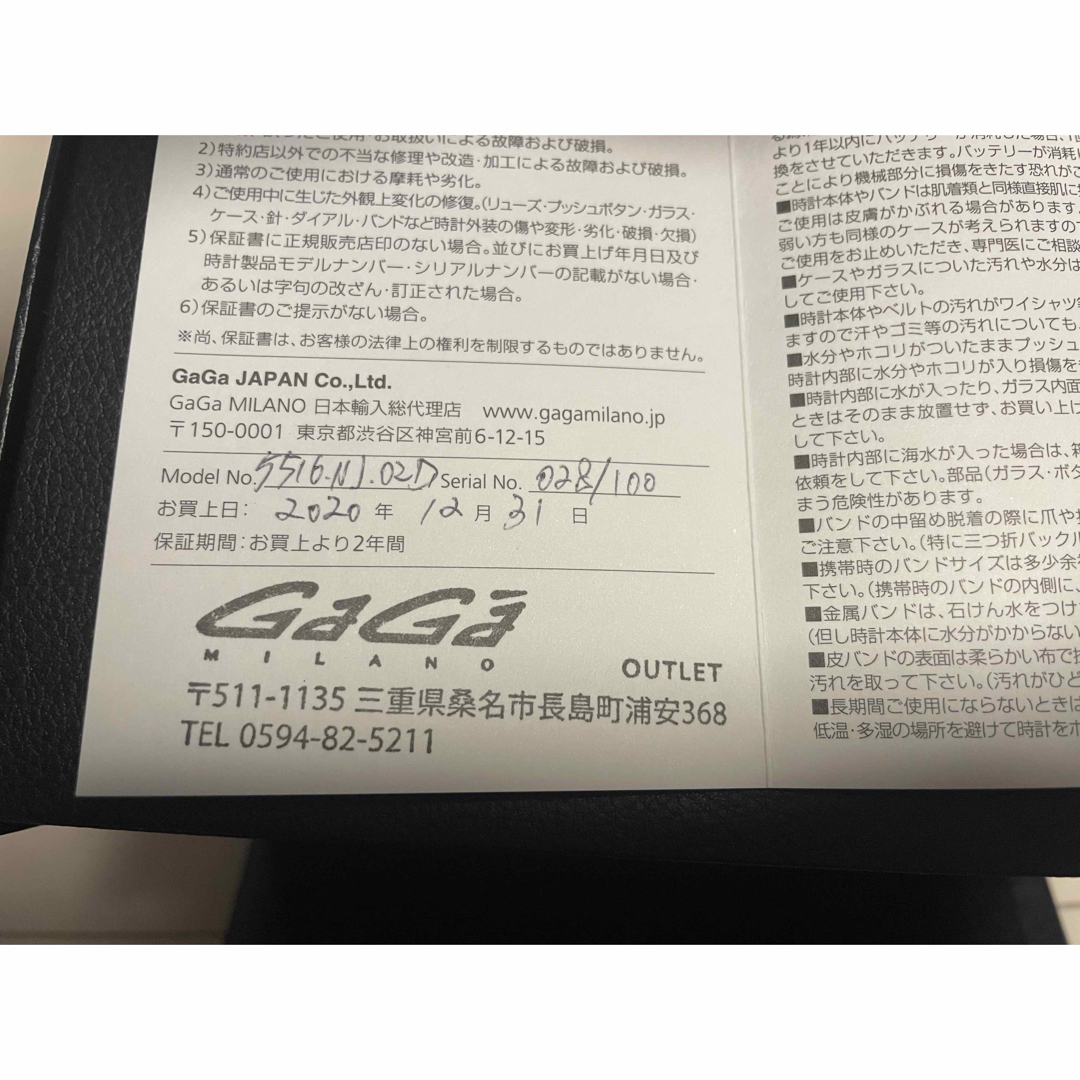 お取扱いによる故障および破損。
2)特約店以外での不当な修理や改造・加工による故障および破損。
3)通常のご使用における摩耗や劣化。
4)ご使用中に生じた外観上変化の修復。(リューズ・プッシュボタン・ガラス・
ケース・針・ダイアル・バンドなど時計外装の傷や変形・劣化・破損・欠損)
5)保証書に正規販売店印のない場合。並びにお買上げ年月日及び
時計製品モデルナンバー・シリアルナンバーの記載がない場合・
あるいは字句の改ざん・訂正された場合。
6)保証書のご提示がない場合。
※尚、保証書は、お客様の法律上の権利を制限するものではありません。
GaGa JAPAN Co.,Ltd.
GaGa MILANO 日本輸入総代理店 www.gagamilano.jp
〒150-0001 東京都渋谷区神宮前6-12-15
Model No. 5516.NJ.02D Serial No. 028/100
お買上日: 2020 年 12 月 31 日
保証期間:お買上より2年間
GaGà
MILANO
OUTLET
〒511-1135 三重県桑名市長島町浦安368
TEL 0594-82-5211
より1年以内にバッテリーが消耗した場合、
換をさせていただきます。バッテリーが消耗
ことにより機械部分に損傷をきたす恐れが
■時計本体やバンドは肌着類と同様直接肌に
ご使用は皮膚がかぶれる場合があります
弱い方も同様のケースが考えられますので
ご使用をお止めいただき、専門医にご相談
■ケースやガラスについた汚れや水分は
してご使用下さい。
■時計本体やベルトの汚れがワイシャツ
ますので汗やゴミ等の汚れについても、
■水分やホコリがついたままプッシュ
時計内部に水分やホコリが入り損傷を
■時計内部に水が入ったり、ガラス内面
ときはそのまま放置せず、お買い上げ
して下さい。
■時計内部に海水が入った場合は、
依頼をして下さい。部品(ガラス・ボタ
まう危険性があります。
■バンドの中留め脱着の際に爪や
ご注意下さい。(特に三つ折バックル
■携帯時のバンドサイズは多少余
下さい。(携帯時のバンドの内側に、
■金属バンドは、石けん水をつけ
(但し時計本体に水分がかからない
■皮バンドの表面は柔らかい布で
汚れを取って下さい。(汚れがひど
■長期間ご使用にならないときは
低温・多湿の場所を避けて時計を